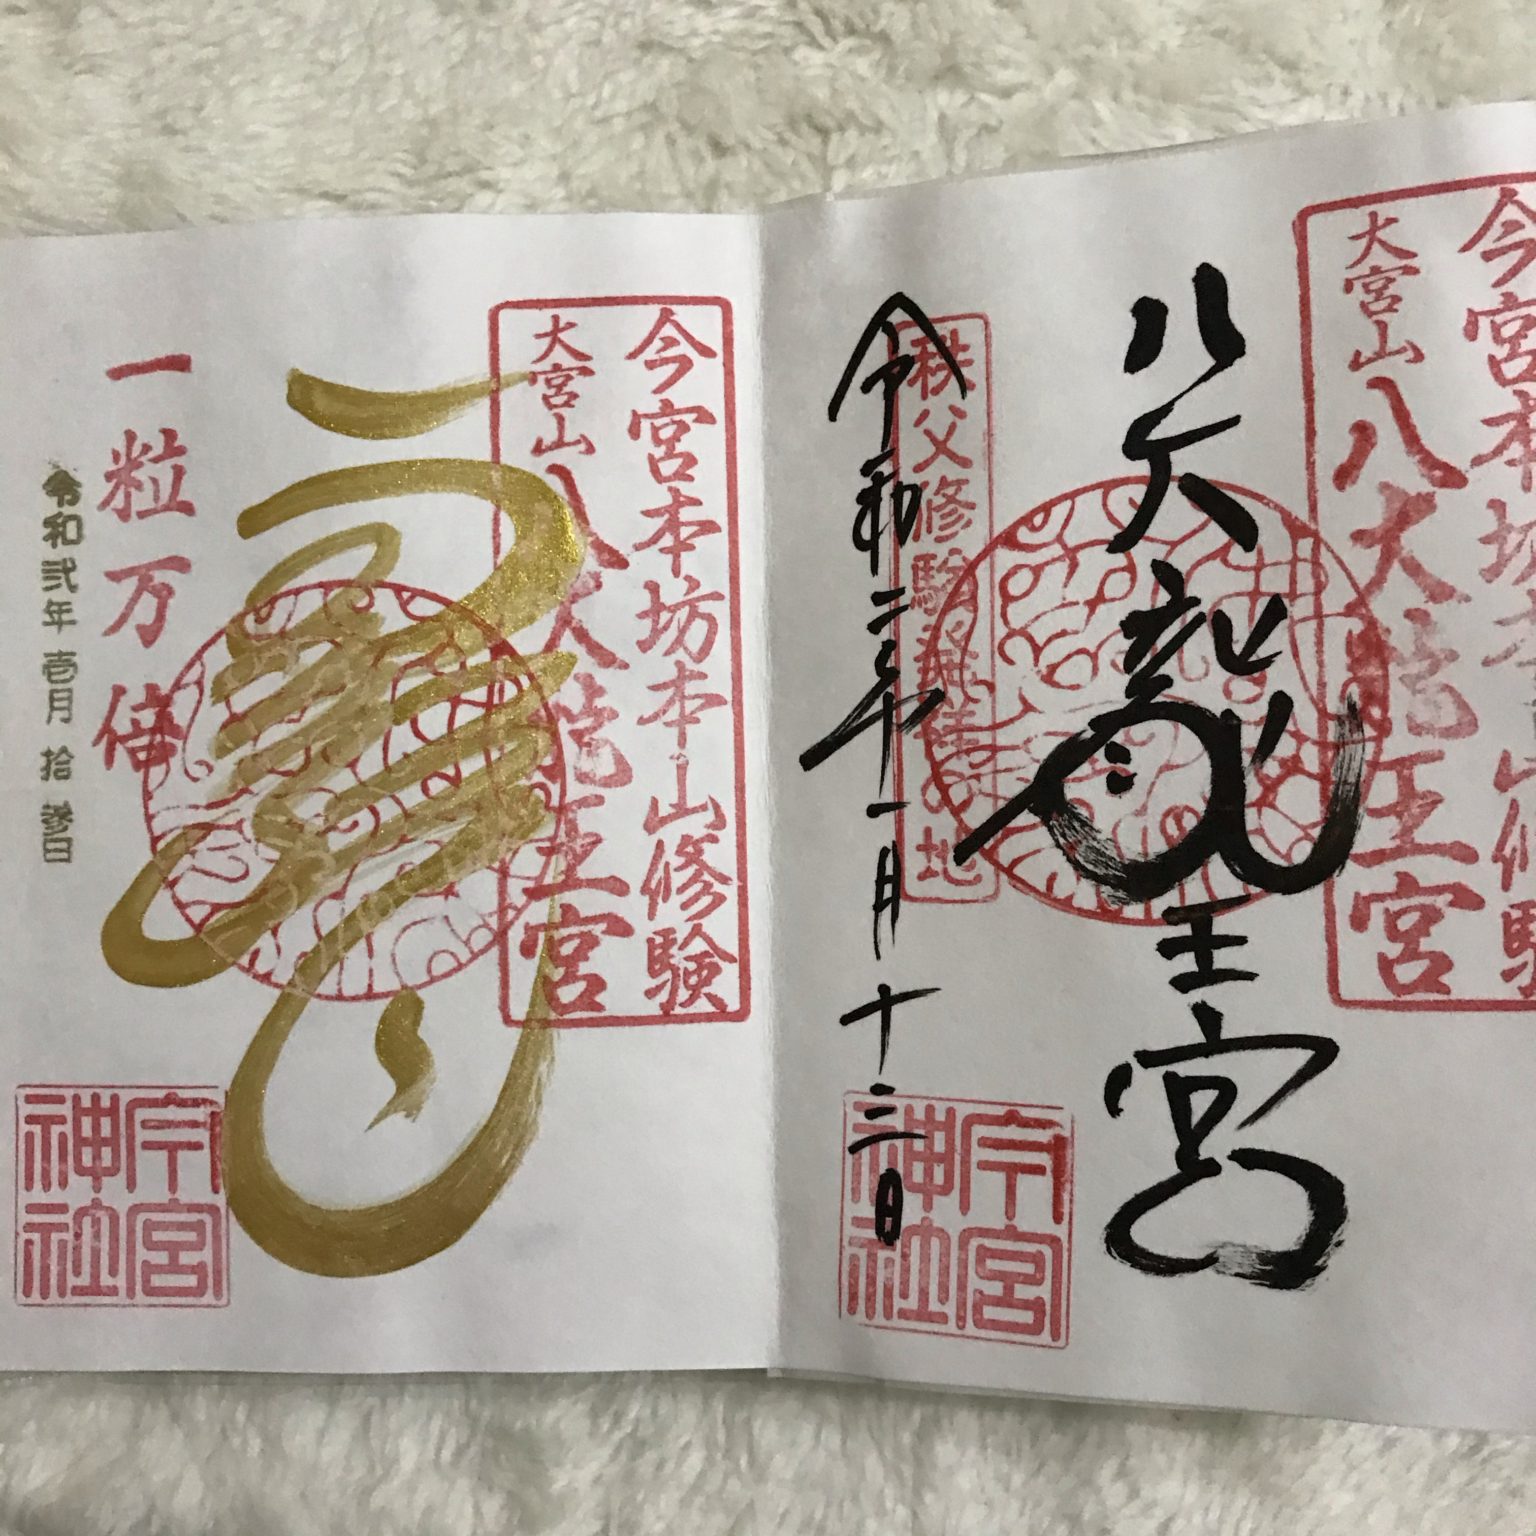 今宮本坊本山修験
大宮山八大龍王宮
八大龍王宮
令和二年一月十三日
今宮神社
今宮本坊本山修験
大宮山八大龍王宮
一粒万倍
令和弐年壱月拾参日
今宮神社